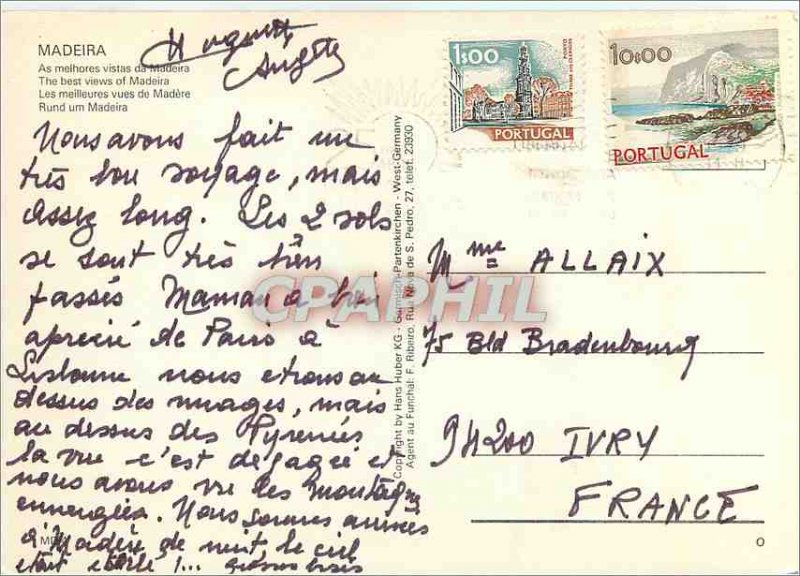 MADEIRA
As melhores vistas da Madeira
The best views of Madeira
Les meilleures vues de Madère
Rund um Madeira
Huguette
1$00
PORTUGAL
10$00
PORTUGAL
Nous avons fait un
très bon voyage, mais
assez long. Les 2 vols
se sont très bien
passés Maman a bien
aprecié de Paris à
Lisbonne nous etions au
dessus des nuages, mais
au dessus des Pyrenées
la vue c'est dégagée et
nous avons vu les montagnes
enneigées. Nous sommes arrivées
à Madère de nuit le ciel
etait etoilé !... grosses bises
Copyright by Hans Huber KG - Garmisch-Partenkirchen - West-Germany
Agent au Funchal: F. Ribeiro, Rua Nova de S. Pedro, 27, telef. 23930
CPAPHIL
Mme ALLAIX
75 Bld Bradenbourg
94200 IVRY
FRANCE
O